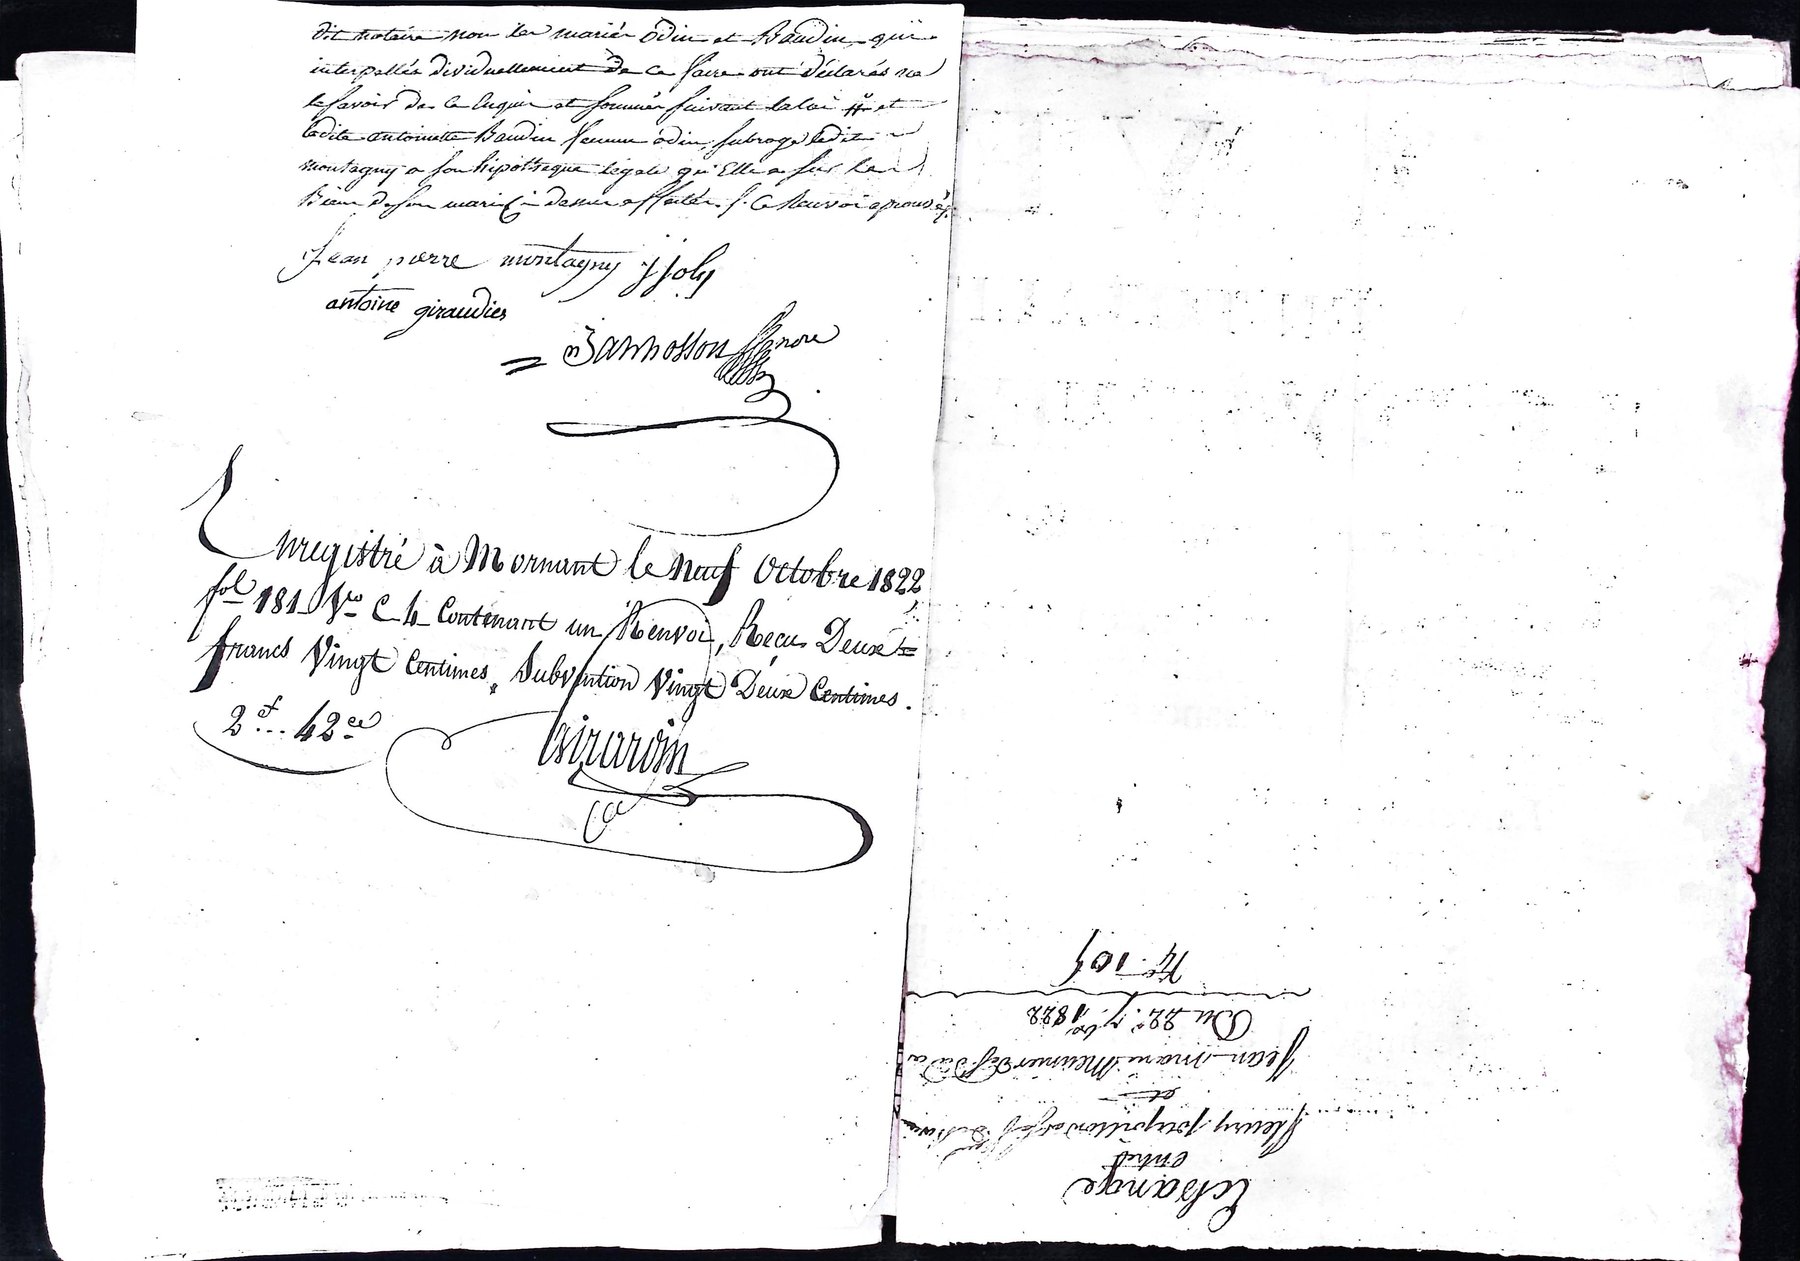 dit notaire non les mariés odin et Baudin, qui
interpellés dividuellement de ce faire ont déclarés ne
le savoir de ce enquis et sommés suivant la loi # et
ladite antoinette Baudin femme odin, subroge ledit
montagny a son hipotheque légale qu'Elle a sur les
Biens de son mari ci dessus affectés. f. Ce Renvoi aprouvé
Jean pierre montagny j joly
antoine giraudier
Enregistré à Mornant le neuf Octobre 1822
fol 181 Vo C 4 Contenant un Renvoi, Recu Deux =
francs Vingt Centimes, Subvention Vingt Deux Centimes.
2f.. 42ce
Girardin
Echange
entre
fleury
et
Jean-marie Meunier
Du 22. 7bre 1822
No. 105